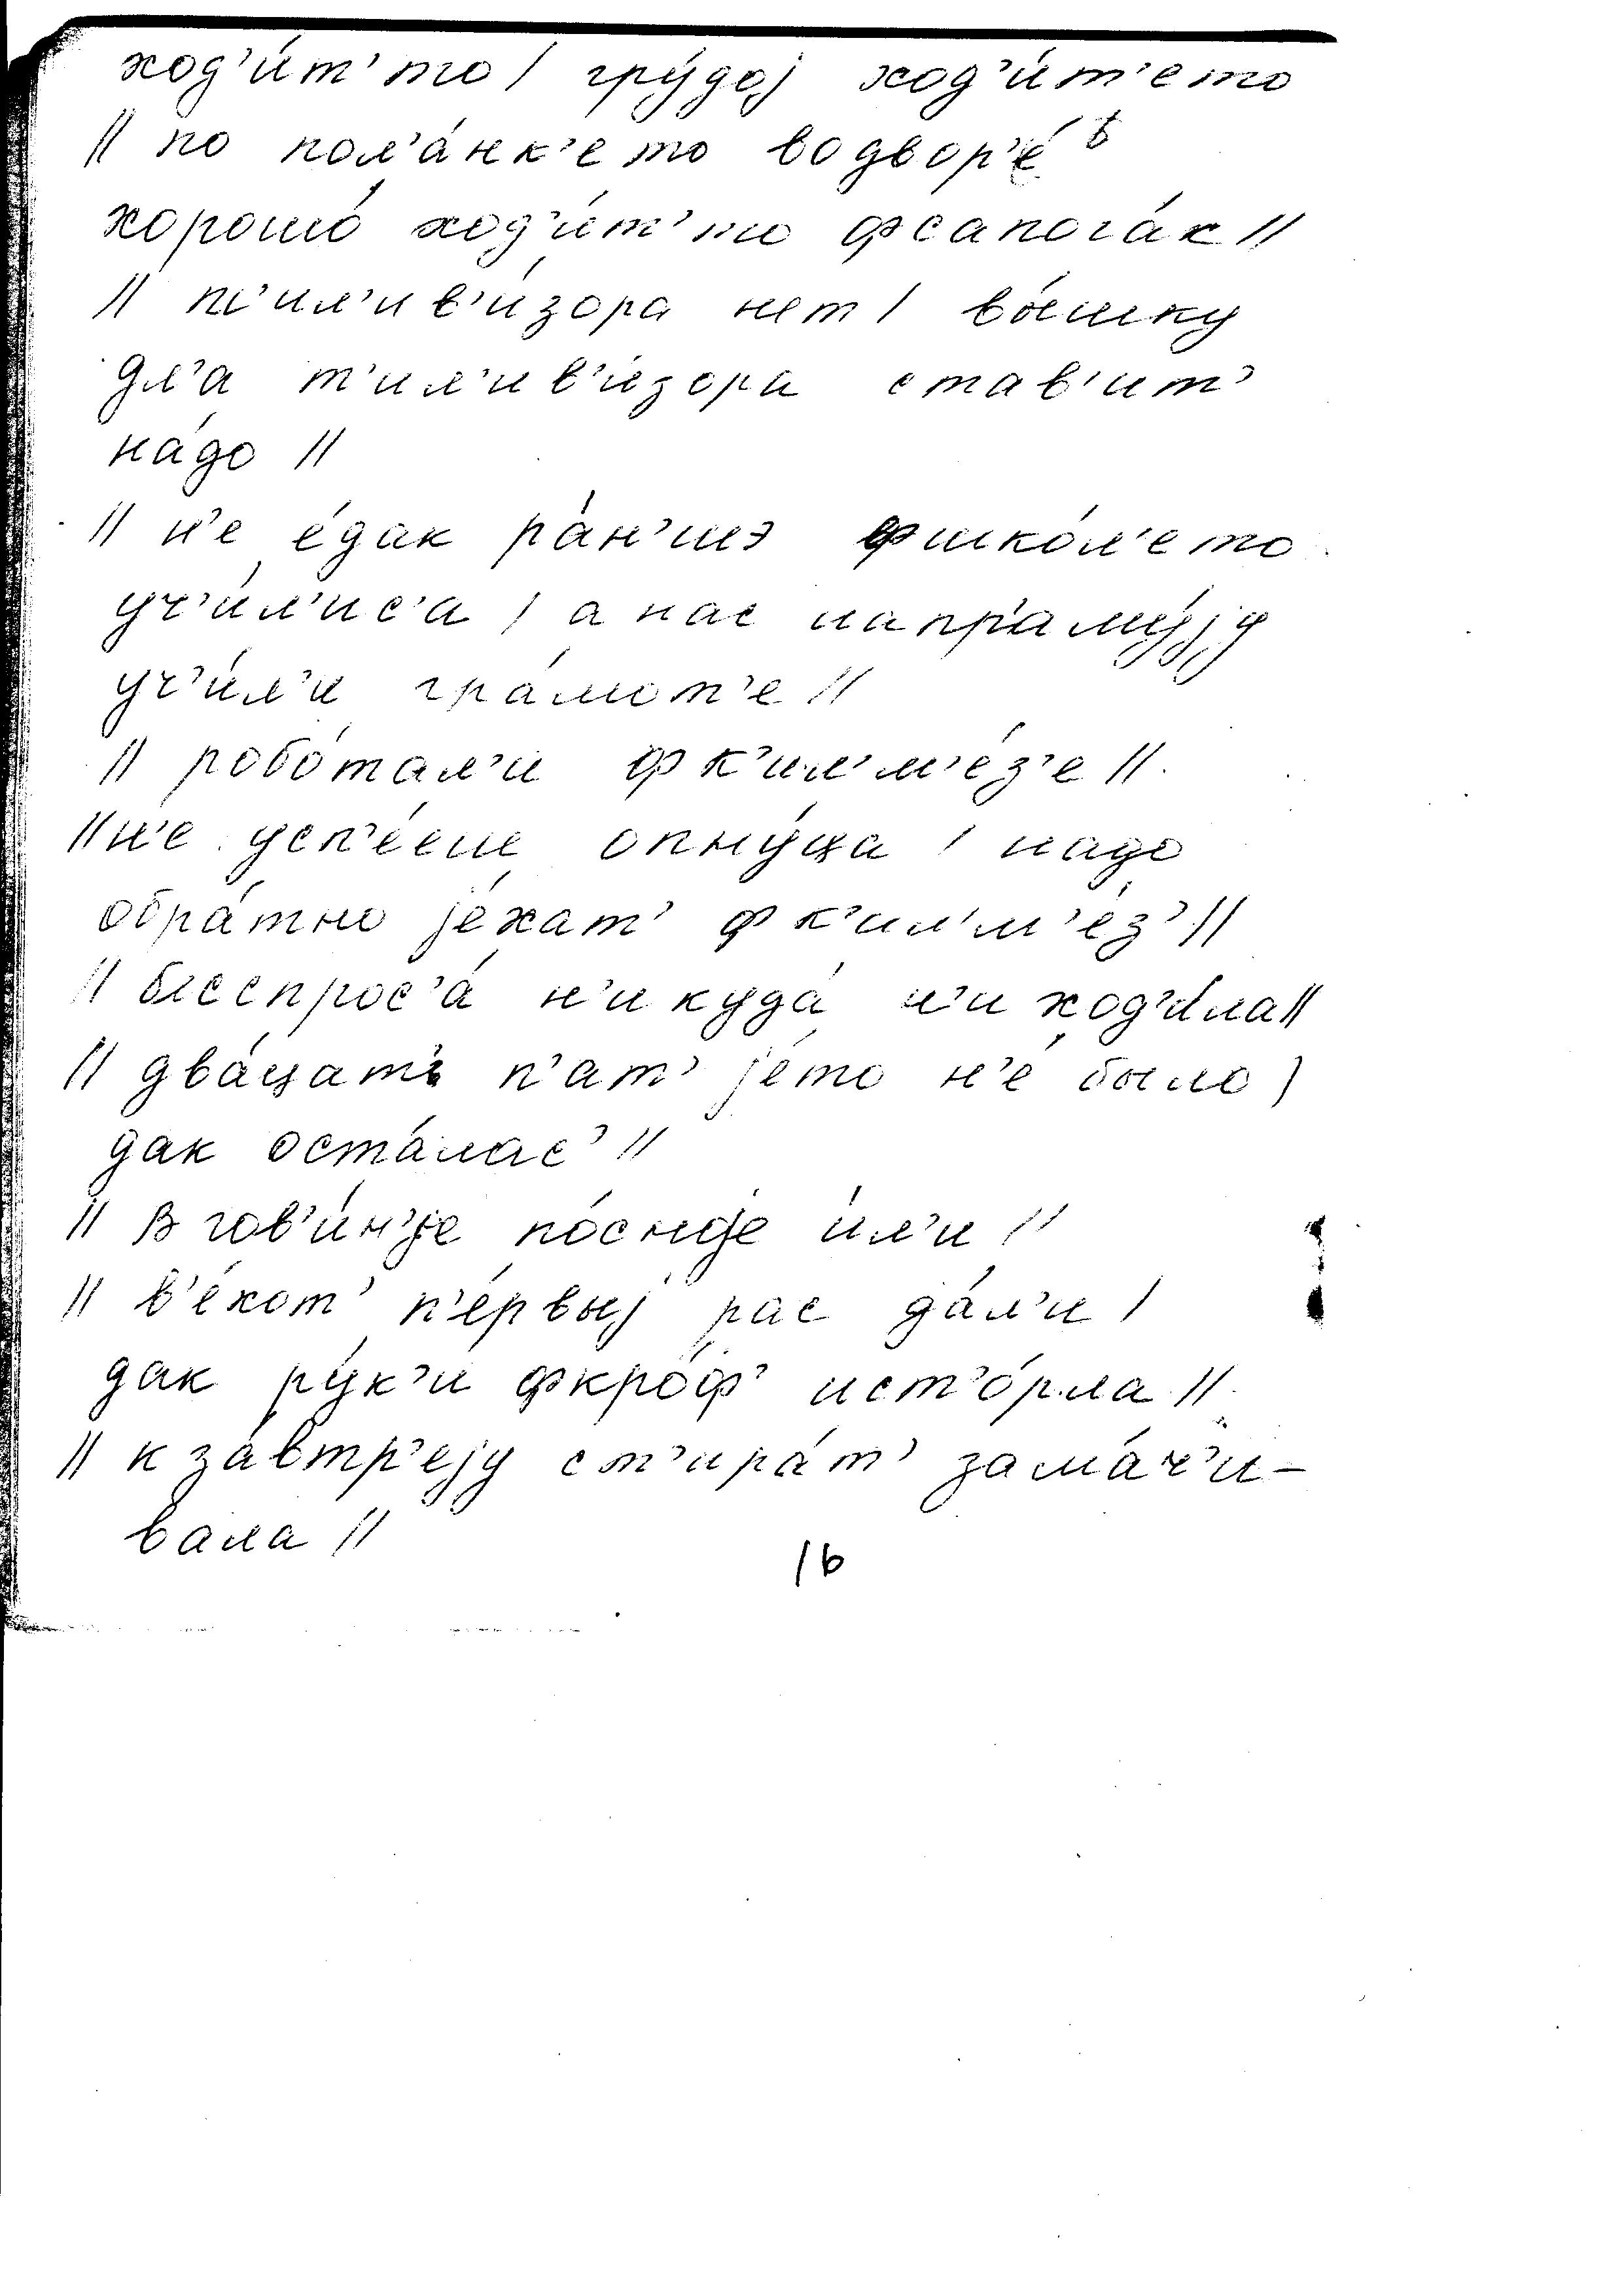 ход’и́т’ то / гру́дој ход’и́т’ето
// по пол’а́нк’ето водвор’е́ ъ
хорошо́ ход’и́т’ то фсапога́к //
// т’ил’ив’и́зора нет / вы́шку
дл’а т’ил’ив’и́зора став’ит’
на́до //
// н’е е́дак ра́н’шэ фшко́л’ето
уч’и́л’ис’а / а нас напр’аму́ју
уч’и́л’и гра́мот’е //
// робо́тал’и ф к’ил’м’е́з’е //
// н’е усп’е́еш опну́ца / надо
обра́тно је́хат’ ф к’ил’м’е́з’ //
// бесспрос’а́ н’икуда́ н’и ход’и́ла //
// два́цат’ п’ат’ је́то н’е́ было /
дак оста́лас’ //
// в гов’и́н’је по́сније и́л’и //
// в’е́хот’ п’е́рвыј рас да́л’и /
дак ру́к’и фкро́ф’ ист’о́рла //
// к за́втр’еју ст’ира́т’ зама́ч’и-
вала //
16